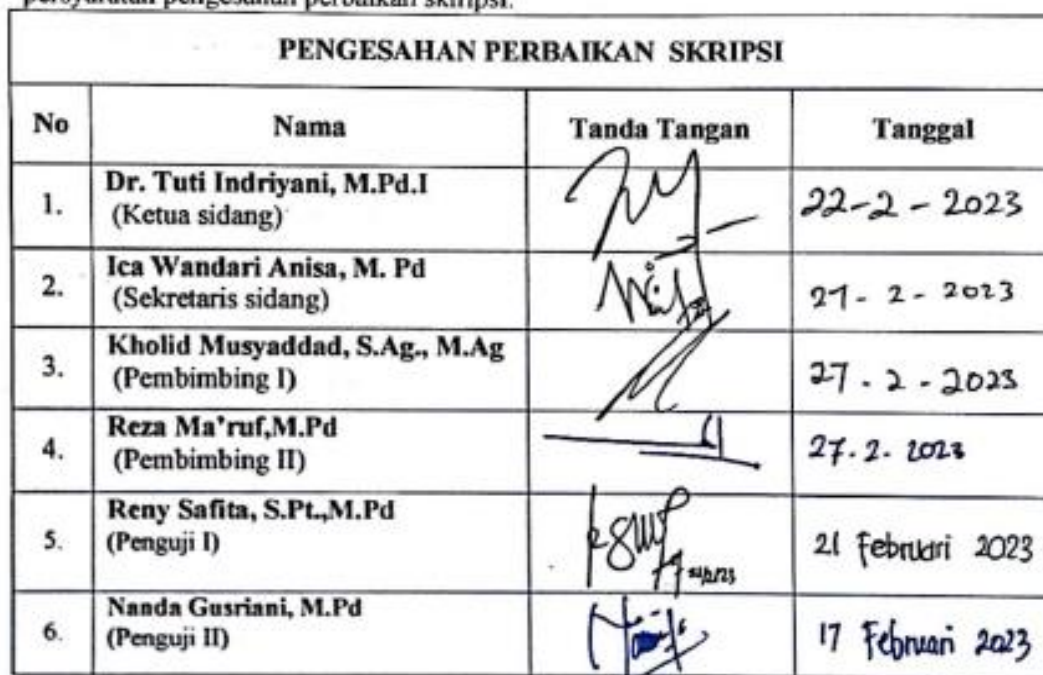 persyaratan pengesahan perbaikan skripsi.
PENGESAHAN PERBAIKAN SKRIPSI
No Nama Tanda Tangan Tanggal
1. Dr. Tuti Indriyani, M.Pd.I
(Ketua sidang) 22-2-2023
2. Ica Wandari Anisa, M. Pd
(Sekretaris sidang) 27-2-2023
3. Kholid Musyaddad, S.Ag., M.Ag
(Pembimbing I) 27-2-2023
4. Reza Ma'ruf,M.Pd
(Pembimbing II) 27.2.2023
5. Reny Safita, S.Pt.,M.Pd
(Penguji I) 21 Februari 2023
6. Nanda Gusriani, M.Pd
(Penguji II) 17 Februari 2023